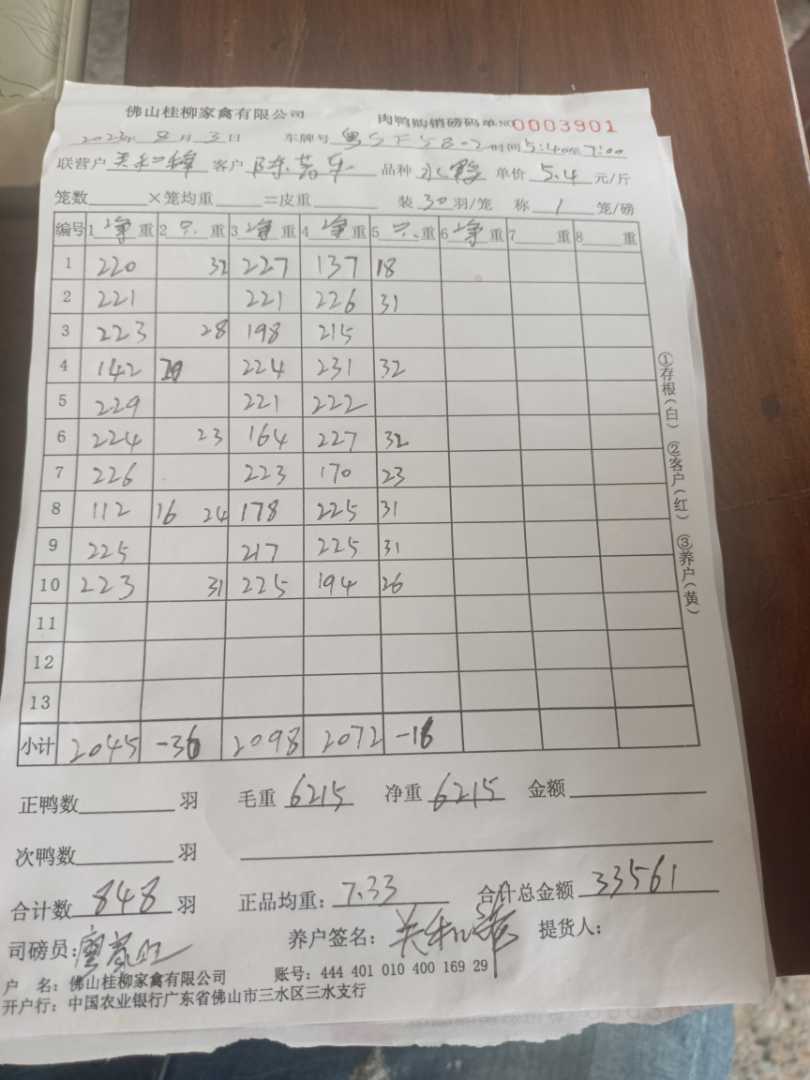 佛山桂柳家禽有限公司 肉鸭购销磅码单 NO 0003901
2023年 8月3日 车牌号 时间5:40至7:00
联营户 客户 品种 单价 5.4 元/斤
笼数 ×笼均重 =皮重 装 30 羽/笼 称 1 笼/磅
编号 1 净 重 2 只 重 3 净 重 4 净 重 5 只 重 6 净 重 7 重 8 重
1 220 32 227 137 18
2 221 221 226 31
3 223 28 198 215
4 142 20 224 231 32
5 229 221 222
6 224 23 164 227 32
7 226 223 170 23
8 112 16 24 178 225 31
9 225 217 225 31
10 223 31 225 194 26
11
12
13
小计 2045 -36 2098 2072 -16
①存根(白) ②客户(红) ③养户(黄)
正鸭数 羽 毛重 6215 净重 6215 金额
次鸭数 羽
合计数 848 羽 正品均重: 7.33 合计总金额 33561
司磅员: 养户签名: 提货人:
户 名: 佛山桂柳家禽有限公司 账号: 444 401 010 400 169 29
开户行: 中国农业银行广东省佛山市三水区三水支行